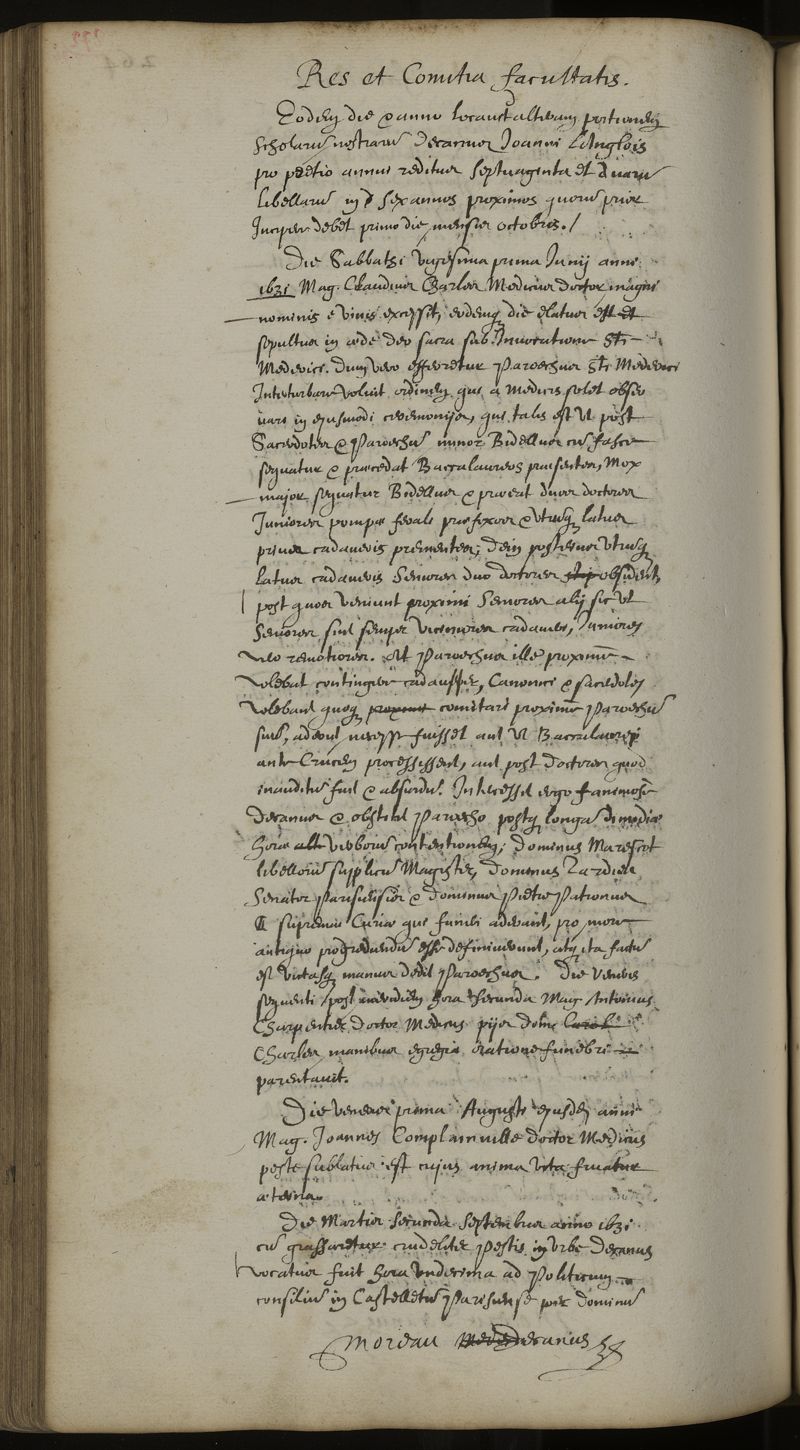 Res et Comitia facultatis.
Eodem die & anno locavit alteram portionem
Scholarū nostrarū decanus Joanni L'Anglois
pro pretio annui reditus septuaginta et duarū
libellarū in sex annos proximos quorū prior
Incipere debet primo die mensis octobris./
Die Sabbathi vigesima prima Junij anno
1631 Mag. Claudius Charles Medicus doctor magni
nominis e vivis excessit, eodemq die elatus est et
sepultus in æde deo sacra sub Invocatione Sti
Mederici. Dum vero efferretur Parochus Sti Mederici
Interturbare voluit ordinem qui a Medicis solet obser
vari in ejusmodi ceremonijs, qui talis est Ut post
Sacerdotes & Parochū minor Bidellus cū fasce
sequatur & præcedat Baccalaureos præsentes, Mox
major sequatur Bidellus & præeat duos doctores
Juniores pompæ ferali præfixos & utrūq latus
prius cadaveris prementes; dein posterius utrūq
latus cadaveris Seniores duo doctores obsident,
post quos veniunt proximi Seniores alij sic Ut
Seniores sint semper viciniores cadaveri, Juniores
vero remotiores. At Parochus ille proxime
volebat contingere cadaver, Canonici & sacerdotes
volebant quoq comitari proxime Parochū
suū, adeout necesse fuisset aut Ut Baccalaurei
ante Crucem processissent, aut post doctores quod
inauditū fuit & absurdū. Intercessit ergo
decanus & obstitit Parocho postq longa dimidiæ
horæ verborū contentionem, dominus Marescot
libellorū supplicū Magister, dominus Tardieu
Senator Parisiensis & dominus Pietre Patronus
supremæ Curiæ qui funeri aderant, pro more
antiquo progrediendū esse definiverunt, atq ita factū
est victasq manus dedit Parochus. Die veneris
sequenti post meridiem hora secunda Mag. Antonius
Charpentier doctor Medicus pijs domi
Charles manibus egregia oratione funebri
parentavit.
Die veneris prima Augusti ejusdem anni
Mag. Joannes Complainville doctor Medicus
peste sublatus est cujus anima vita fruatur
æterna.
Die Martis secunda Septembris anno 1631
cū grassaretur crudeliter Pestis in Urbe decanus
vocatus fuit hora undecima ad Politicum
consiliū in Castelletū Parisiense per dominū
Moreau decanus